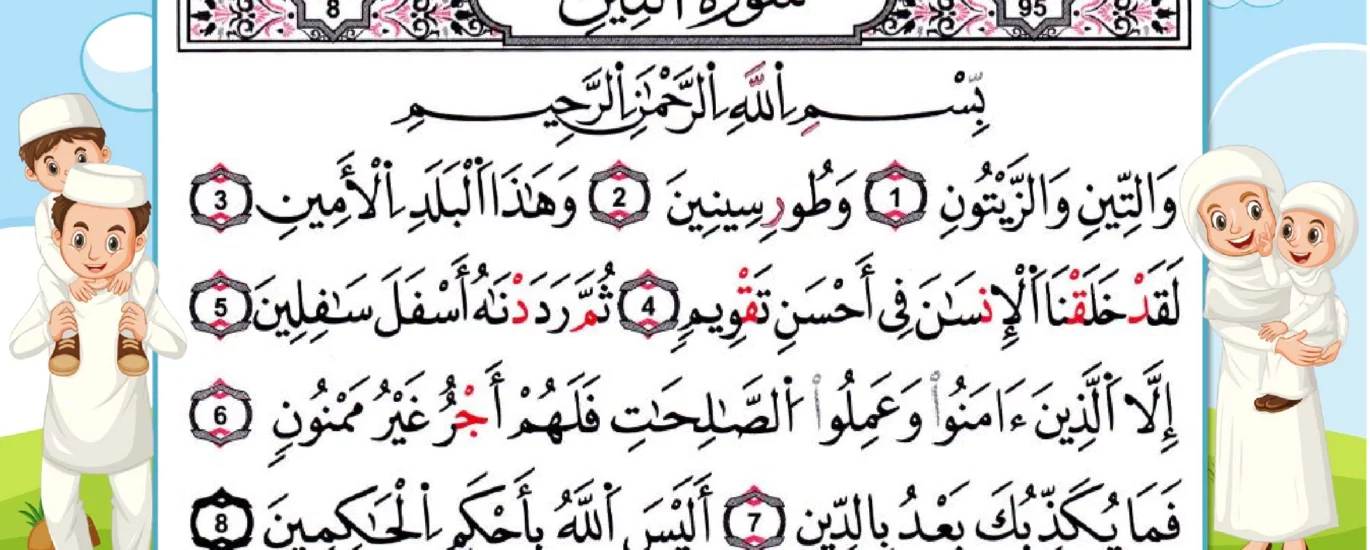 95 سورة التين 8
بِّسْمِ اِ۬للَّهِ اِ۬لرَّحْمَٰنِ اِ۬لرَّحِيمِ
وَالتِّينِ وَالزَّيْتُونِ 1 وَطُورِ سِينِينَ 2 وَهَٰذَا اَ۬لْبَلَدِ اِ۬لْأَمِينِ 3
لَقَدْ خَلَقْنَا اَ۬لْإِنسَٰنَ فِى أَحْسَنِ تَقْوِيمٍ 4 ثُمَّ رَدَدْنَٰهُ أَسْفَلَ سَٰفِلِينَ 5
إِلَّا اَ۬لَّذِينَ ءَامَنُواْ وَعَمِلُواْ اُ۬لصَّٰلِحَٰتِ فَلَهُمْ أَجْرٌ غَيْرُ مَمْنُونٍ 6
فَمَا يُكَذِّبُكَ بَعْدُ بِالدِّينِ 7 أَلَيْسَ اَ۬للَّهُ بِأَحْكَمِ اِ۬لْحَٰكِمِينَ 8